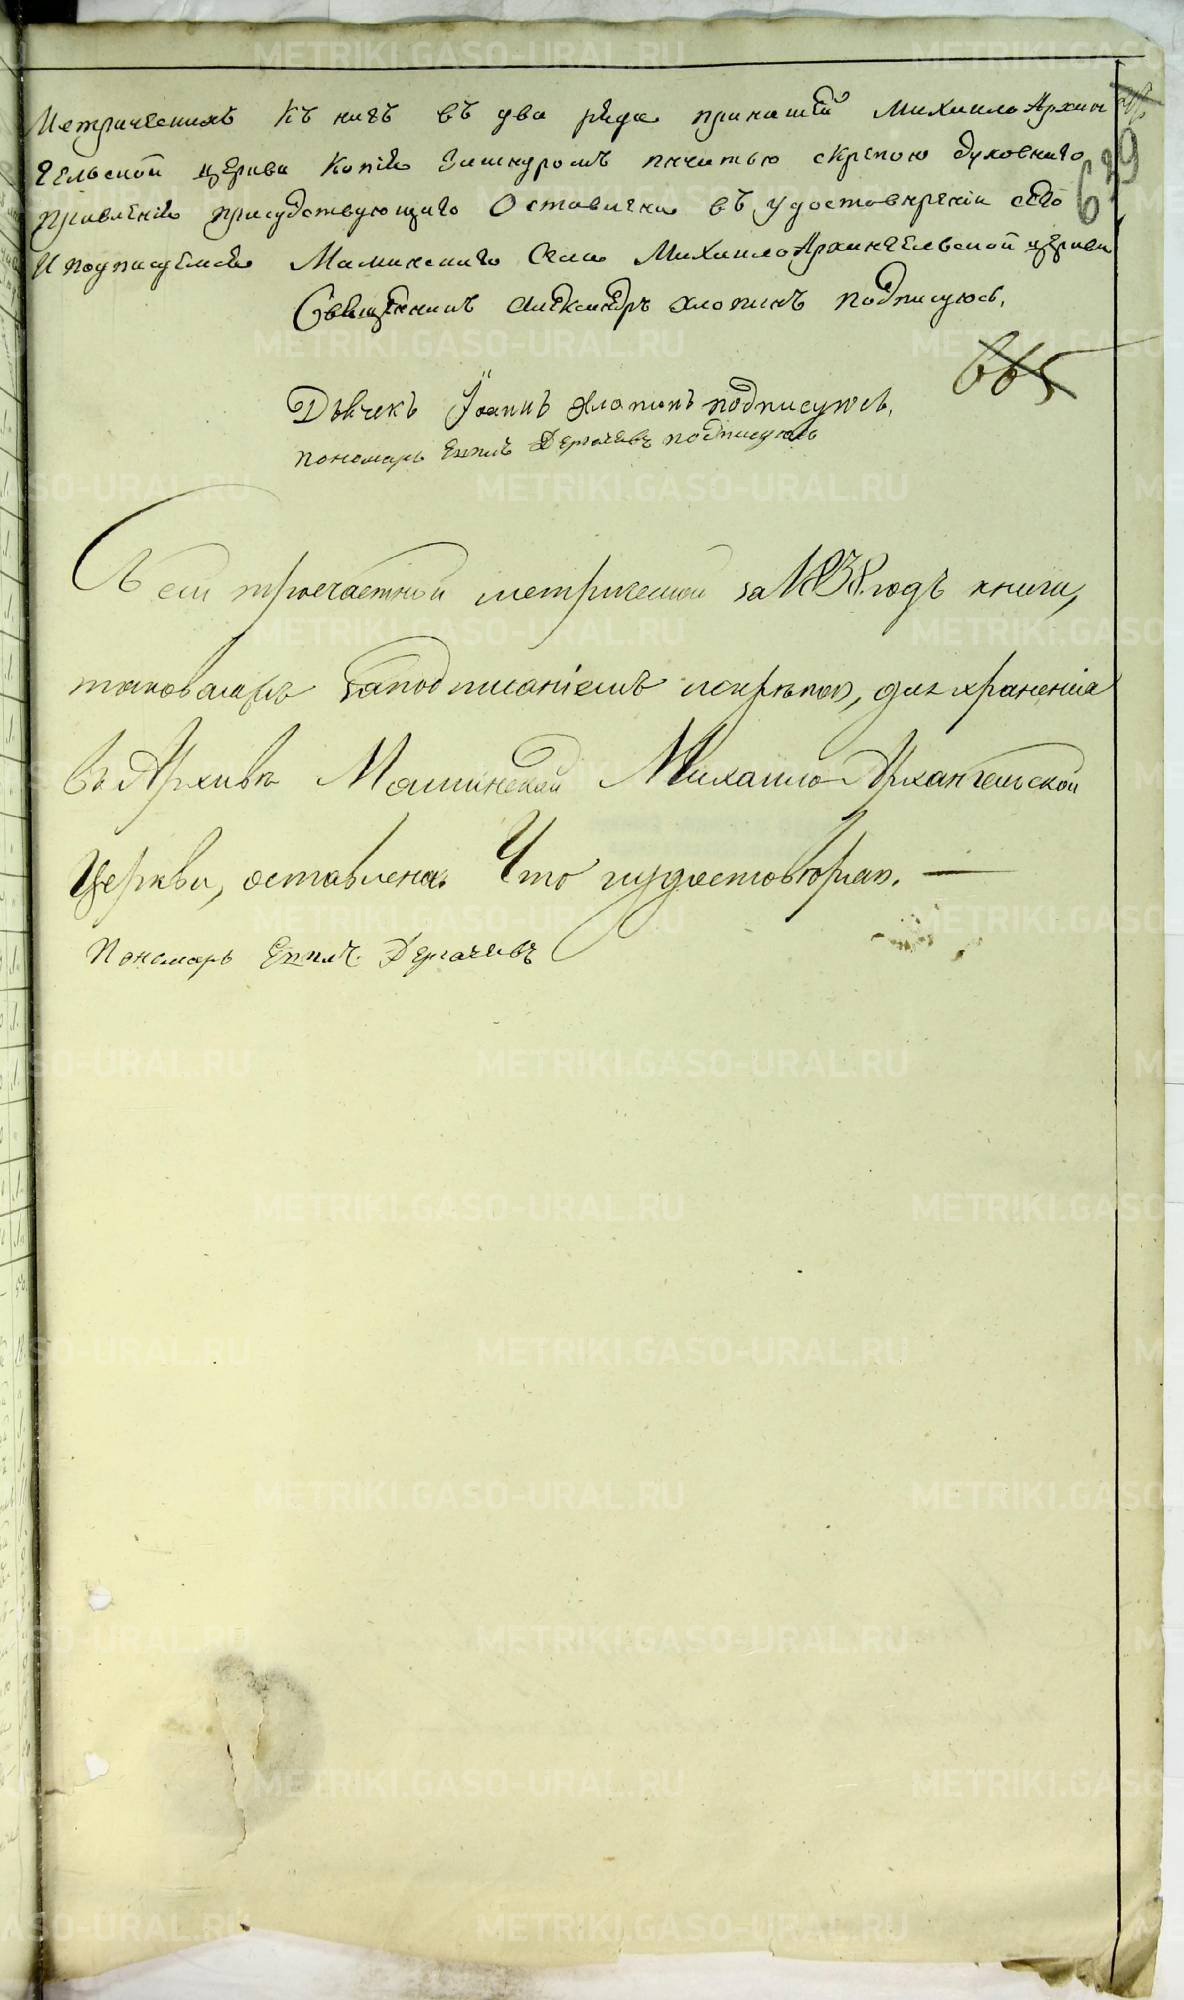 Метрическихъ книгъ въ два ряда принашей Михаило Архан
гельской церкви Копія Зашнуромъ пичатью скрепою духовнаго
правленія присудствующаго Оставлена въ удостовиреніи сего
И подписуемся Маминскаго Села Михаило Архангельской церкви
Священникъ Александръ Хлопинъ подписуюсь.
665
629
Дьячекъ Іоаннъ Хлопинъ подписуюсь,
пономарь Дергачевъ подписуюсь
Съ сей троечастной метрической за 1838. годъ книги,
таковаяжъ заподписаніемъ искрѣпою, для храненія
въ Архивѣ Маминской Михаило-Архангельской
Церкви, оставлена. Что иудостовѣряю. —
Пономарь Дергачевъ
METRIKI.GASO-URAL.RU